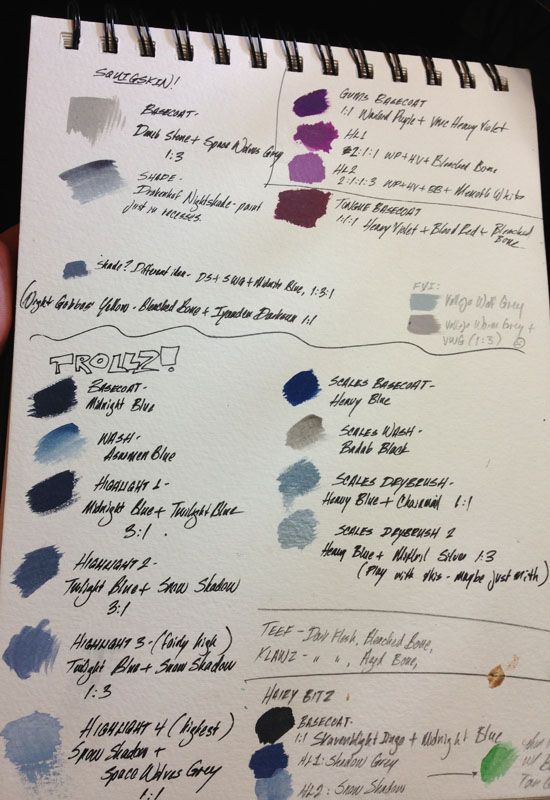 SQUIGSKIN!
BASECOAT-
Dheneb Stone + Space Wolves Grey
1:3
SHADE-
Drakenhof Nightshade - paint
just in recesses.
GUMS BASECOAT
1:1 Warlord Purple + VMC Heavy Violet
HL1
2:1:1 WP+HV+Bleached Bone
HL2
2:1:1:3 WP+HV+BB+Menoth White
TONGUE BASECOAT
1:1:1 Heavy Violet + Blood Red + Bleached
Bone
Shade? Different idea - DS + SWG + Midnite Blue, 1:3:1
(Night Goblins' Yellow - Bleached Bone + Iyanden Darksun 1:1
FYI:
Vallejo Wolf Grey
Vallejo Warm Grey +
VWG (1:3)
TROLLZ!
BASECOAT-
Midnight Blue
WASH-
Asurmen Blue
HIGHLIGHT 1-
Midnight Blue + Twilight Blue
3:1
HIGHLIGHT 2-
Twilight Blue + Snow Shadow
3:1
HIGHLIGHT 3-(fairly high)
Twilight Blue + Snow Shadow
1:3
HIGHLIGHT 4 (highest)
Snow Shadow +
Space Wolves Grey
1:1
SCALES BASECOAT-
Heavy Blue
SCALES WASH-
Badab Black
SCALES DRYBRUSH
Heavy Blue + Chainmail 1:1
SCALES DRYBRUSH 2
Heavy Blue + Mithril Silver 1:3
(Play with this - maybe just mith)
TEEF - Dark Flesh, Bleached Bone,
KLAWZ - " ", Bone,
HAIRY BITZ
BASECOAT-
1:1 Skavenblight Dinge + Midnight Blue
HL1: Shadow Grey
HL2: Snow Shadow